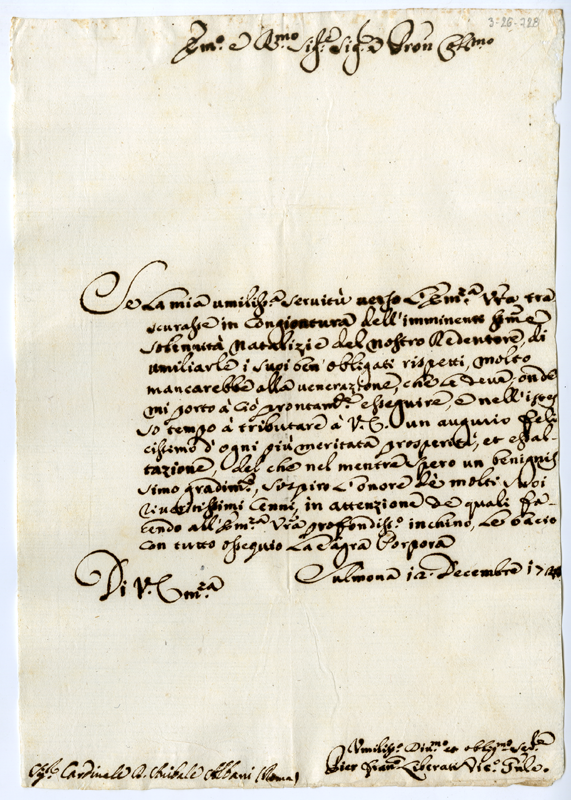 3-26-728
Em.º e R.mo Sig.r Sig.r e Pron Col.mo
Se la mia umiliss.a servitù verso l'Em.za Vra tra
scurasse in congiontura dell'imminenti
solennità natalizie del nostro Redentore, di
umiliarle i suoi ben obligati rispetti, molto
mancarebbe alla venerazione, che le deve; onde
mi porto à ciò prontam.te esseguire, e nell'istes
so tempo à tributare à V. E. un augurio feli
cissimo d'ogni più meritata prosperità, et esal-
tazione, del che nel mentre spero un benignis
simo gradim.to, sospiro l'onore de molti suoi
riveritissimi cenni, in attenzione de quali fa-
cendo all'Em.za Vra profondiss.o inchino, le bacio
con tutto ossequio la sagra Porpora
Di V. Em.za
Sulmona 12 Decembre
Umiliss.o Div.mo et oblig.mo Ser.
Sig.r Cardinale Annibale Albani (Roma)
Pier Fran.co Liberati Vic.o Gnle